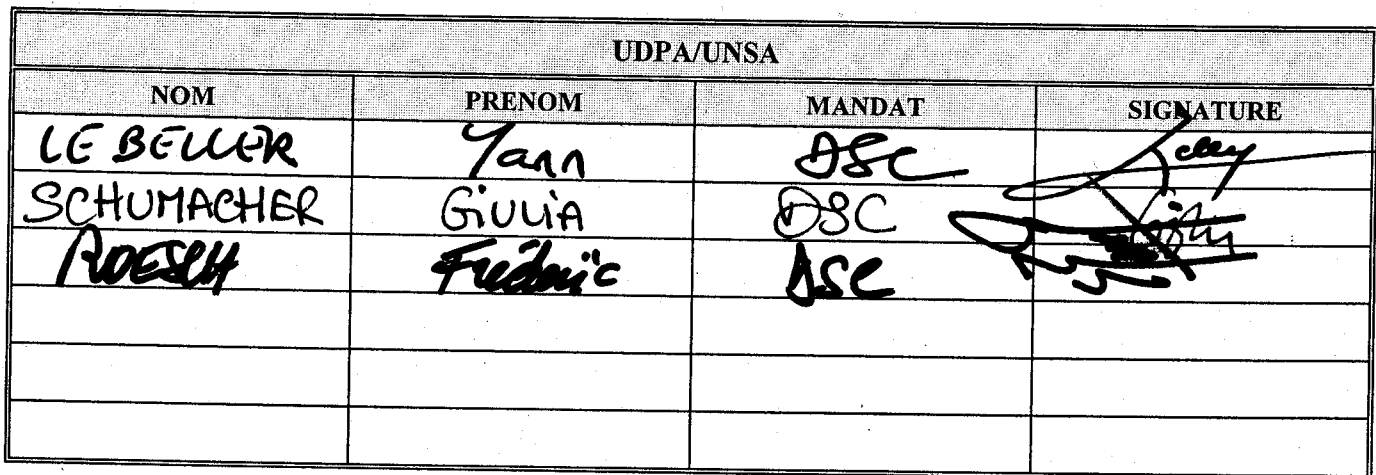 UDPA/UNSA
NOM PRENOM MANDAT SIGNATURE
LE BELLER Yann DSC
SCHUMACHER GiULiA DSC
ROESCH Frédéric DSC